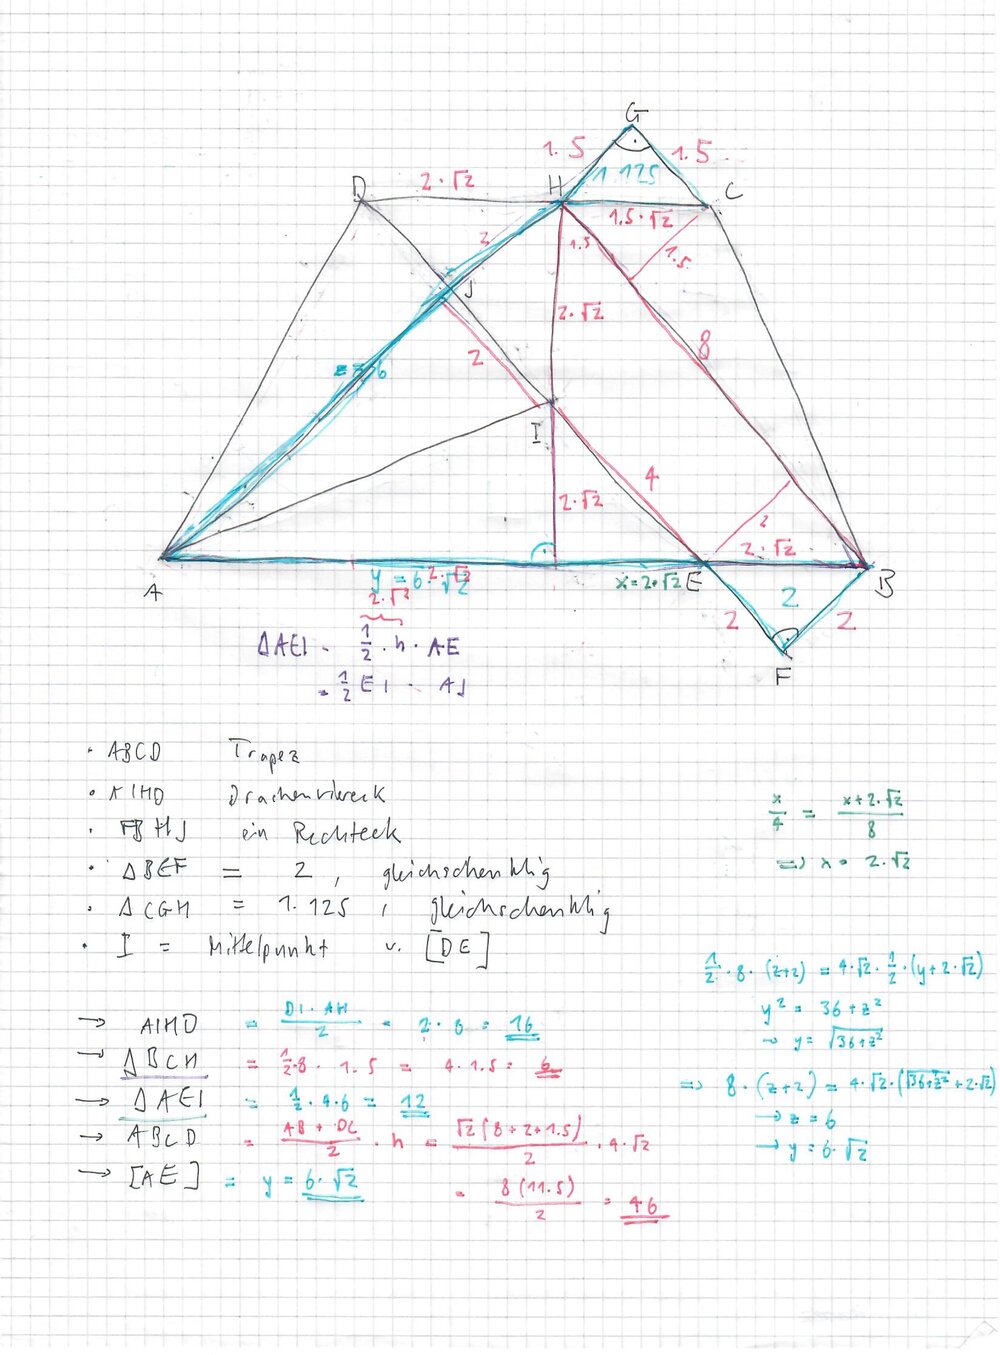 G
1.5
1.5
1.125
D
2·√2
H
C
1,5·√2
1.5
1.5
2
J
2·√2
8
2
I
4
2·√2
2
2·√2
A
y = 6·√2
2·√2
x=2·√2
E
B
2·√2
2
2
2
F
ΔAEI = 1/2 · h · AE
= 1/2 EI · AJ
· ABCD Trapez
· AIHD Drachenviereck
· FBHJ ein Rechteck
· ΔBEF = 2, gleichschenklig
· ΔCGH = 1.125, gleichschenklig
· I = Mittelpunkt v. [DE]
x/4 = (x+2·√2)/8
=> x = 2·√2
1/2 · 8 · (z+2) = 4·√2 · 1/2 · (y+2·√2)
y² = 36+z²
→ y = √(36+z²)
=> 8·(z+2) = 4·√2·(√(36+z²)+2·√2)
→ z = 6
→ y = 6·√2
→ AIHD = (DI · AH)/2 = 2 · 8 = 16
→ ΔBCH = 1/2·8 · 1.5 = 4·1.5 = 6
→ ΔAEI = 1/2·4·6 = 12
→ ABCD = (AB + DC)/2 · h = √2(8+2+1.5)/2 · 4·√2
= 8(11.5)/2 = 46
→ [AE] = y = 6·√2